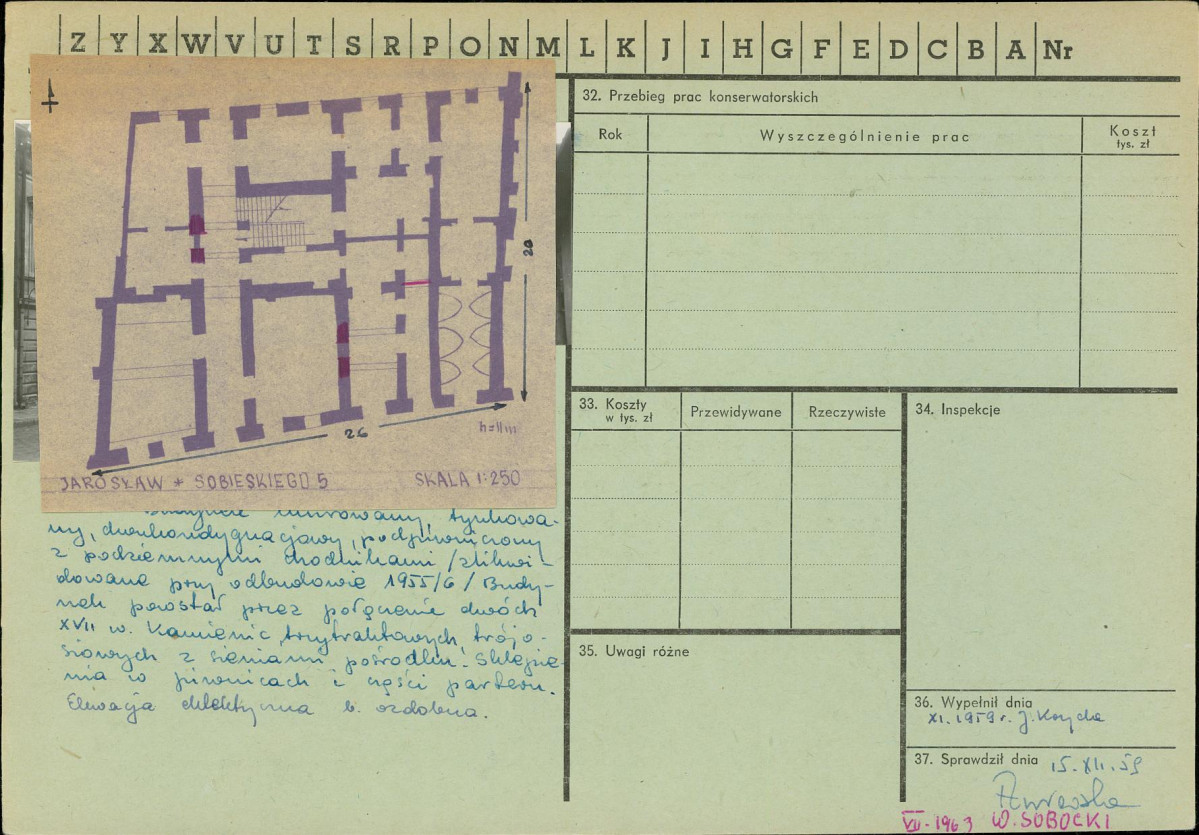 Z Y X W V U T S R P O N M L K J I H G F E D C B A Nr
20
26
h=11m
JAROSŁAW * SOBIESKIEGO 5 SKALA 1:250
murowany, tynkowa-
ny, dwukondygnacjowy, podpiwniczony
z podziemnymi chodnikami /zlikwi-
dowane przy odbudowie 1955/6/ Budy-
nek powstał przez połączenie dwóch
XVII w. kamienic, trzytraktowych, trójo-
siowych z sieniami pośrodku. Sklepie-
nia w piwnicach i części parteru.
Elewacja eklektyczna b. ozdobna.
32. Przebieg prac konserwatorskich
Rok Wyszczególnienie prac Koszt
tys. zł
33. Koszty
w tys. zł
Przewidywane Rzeczywiste
34. Inspekcje
35. Uwagi różne
36. Wypełnił dnia
XI. 1959 r. J.
37. Sprawdził dnia 15.XII.59
VII-1963 W. SOBOCKI